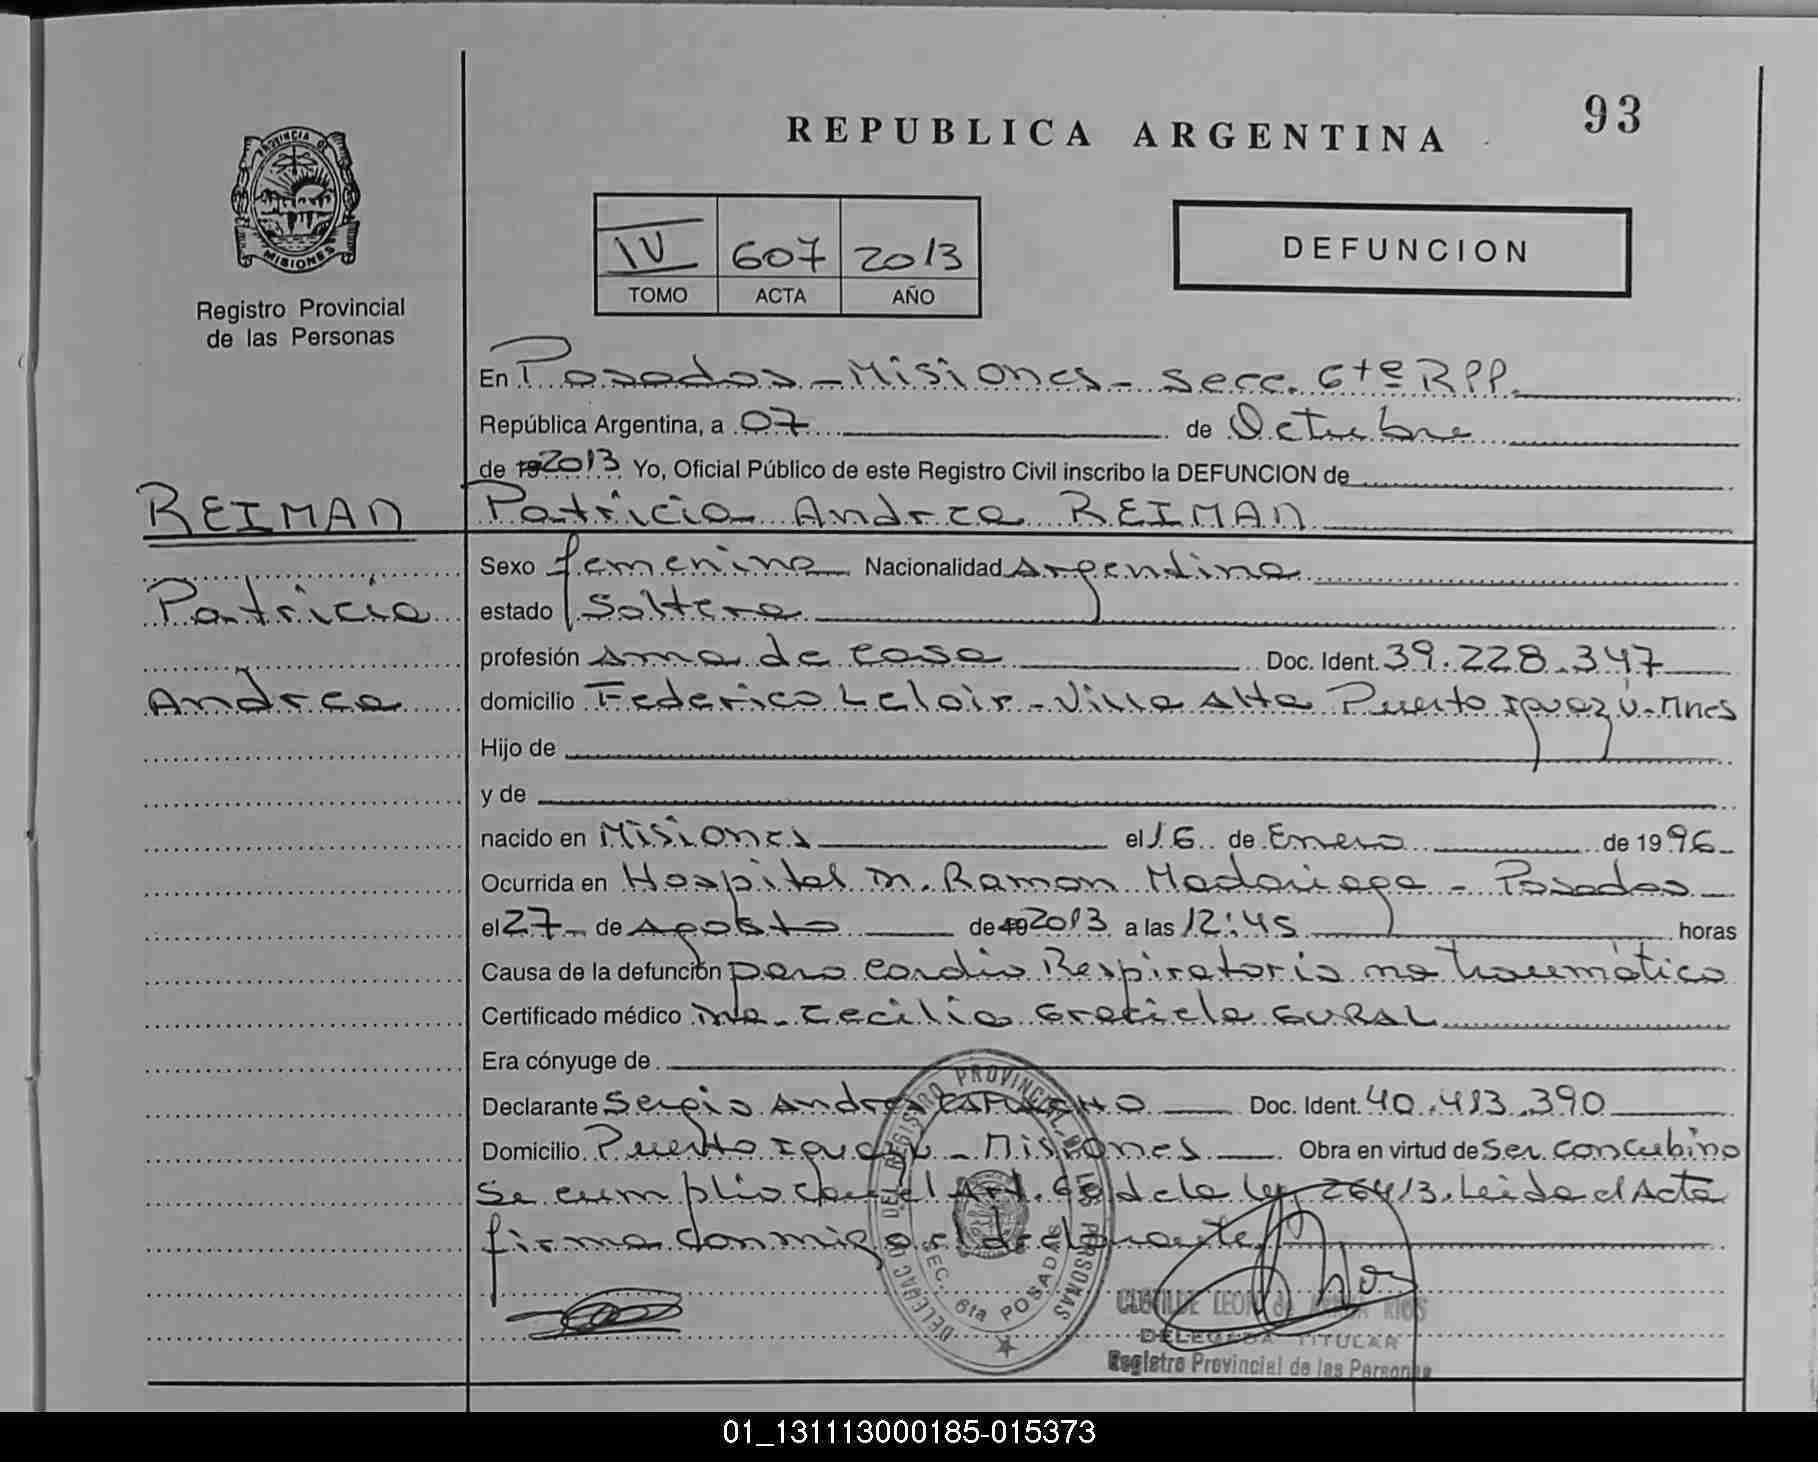 93
REPUBLICA ARGENTINA
PROVINCIA DE MISIONES
Registro Provincial
de las Personas
IV 607 2013
TOMO ACTA AÑO
DEFUNCION
En Posadas - Misiones - Secc. 6ta RPP.
República Argentina, a 07 de Octubre
de 19 2013 Yo, Oficial Público de este Registro Civil inscribo la DEFUNCION de
REIMAN
Patricia Andrea REIMAN
Patricia
Andrea
Sexo femenina Nacionalidad Argentina
estado Soltera
profesión Ama de casa Doc. Ident. 39.228.347
domicilio Federico Leloir - Villa Alta Puerto Iguazú - Mnes
Hijo de
y de
nacido en Misiones el 16 de Enero de 1996
Ocurrida en Hospital Dr. Ramon Madariaga - Posadas
el 27 de Agosto de 19 2013 a las 12:45 horas
Causa de la defunción paro cardio Respiratorio no traumático
Certificado médico Dra. Cecilia Graciela GURAL
Era cónyuge de
Declarante Sergio Andres Doc. Ident. 40.413.390
Domicilio Puerto Iguazu - Misiones Obra en virtud de Ser concubino
Se cumplio con el Art. 60 de la ley 26413. Leida el Acta
firma conmigo el declarante
DELEGAC DEL REGISTRO PROVINCIAL DE LAS PERSONAS
SEC. 6ta POSADAS
CLOTILDE LEON de RIOS
DELEGADA TITULAR
Registro Provincial de las Personas
01_131113000185-015373